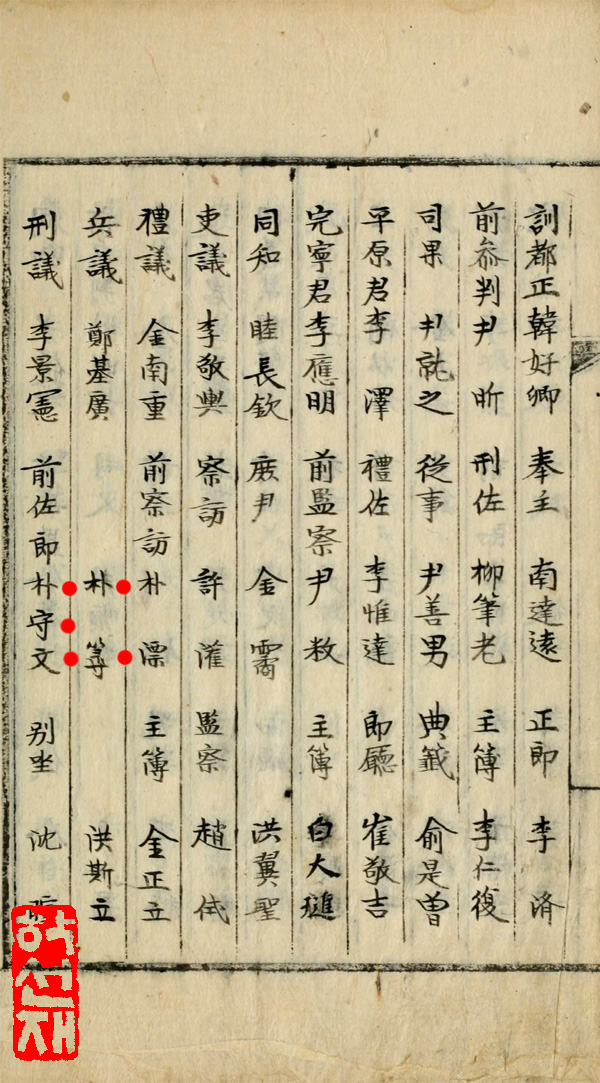 訓都正韓好卿 奉主 南達遠 正郎 李 済
前叅判尹 昕 刑佐 柳筆老 主簿 李仁復
司果 尹誮之 從事 尹善男 典籤 俞是曾
平原君李 澤 禮佐 李惟達 郎廳 崔敬吉
完寧君李應明 前監察尹 敉 主簿 白大
同知 睦長欽 庶尹 金 霱 洪翼聖
吏議 李敬輿 察訪 許 𤄷 監察 趙
禮議 金南重 前察訪朴 漂 主簿 金正立
兵議 鄭基廣 朴 筹 洪斯立
刑議 李景憲 前佐郎朴守文 别坐 沈
하선재